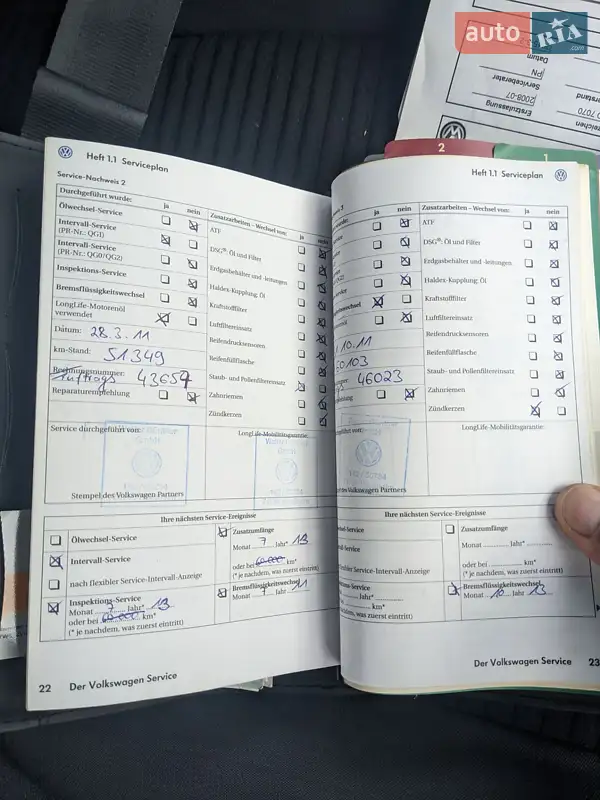 auto RIA .com
Datum
JPN
Serviceberater
2008-07
Erstzulassung
7070
2
1
Heft 1.1 Serviceplan
Service-Nachweis 2
Durchgeführt wurde: ja nein Zusatzarbeiten – Wechsel von: ja nein
Ölwechsel-Service ATF
Intervall-Service (PR-Nr.: QG1) DSG®: Öl und Filter
Intervall-Service (PR-Nr.: QG0/QG2) Erdgasbehälter und -leitungen
Inspektions-Service Haldex-Kupplung: Öl
Bremsflüssigkeitswechsel Kraftstofffilter
LongLife-Motorenöl verwendet Luftfiltereinsatz
Datum: 28.3.11 Reifendrucksensoren
km-Stand: 51349 Reifenfüllflasche
Rechnungsnummer: Auftrags 43657 Staub- und Pollenfiltereinsatz
Reparaturempfehlung Zahnriemen
Zündkerzen
Service durchgeführt von: LongLife-Mobilitätsgarantie:
Stempel des Volkswagen Partners
Ihre nächsten Service-Ereignisse
Ölwechsel-Service Zusatzumfänge
Monat 7 Jahr* 13
Intervall-Service oder bei 60.000 km*
(* je nachdem, was zuerst eintritt)
nach flexibler Service-Intervall-Anzeige Bremsflüssigkeitswechsel
Monat 7 Jahr 11
Inspektions-Service
Monat 7 Jahr* 13
oder bei 60.000 km*
(* je nachdem, was zuerst eintritt)
22 Der Volkswagen Service
Heft 1.1 Serviceplan
ja nein Zusatzarbeiten – Wechsel von: ja nein
ATF
DSG®: Öl und Filter
Erdgasbehälter und -leitungen
Haldex-Kupplung: Öl
Kraftstofffilter
Luftfiltereinsatz
10.11 Reifendrucksensoren
0103 Reifenfüllflasche
46023 Staub- und Pollenfiltereinsatz
Zahnriemen
Zündkerzen
LongLife-Mobilitätsgarantie:
Volkswagen Partners
Ihre nächsten Service-Ereignisse
Zusatzumfänge
Monat Jahr*
oder bei km*
(* je nachdem, was zuerst eintritt)
flexibler Service-Intervall-Anzeige
Service Bremsflüssigkeitswechsel
Jahr* Monat 10 Jahr 13
km*
nachdem, was zuerst eintritt)
Der Volkswagen Service 23